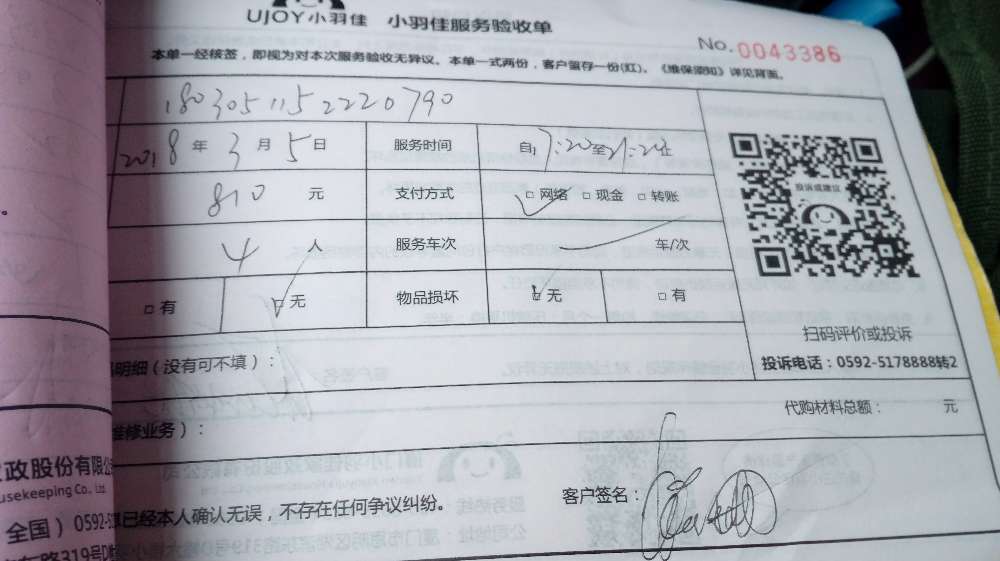 UJOY小羽佳 小羽佳服务验收单
No.0043386
本单一经核签，即视为对本次服务验收无异议。本单一式两份，客户留存一份(红)。《维保须知》详见背面。
1803051152220790
2018年3月5日 服务时间 自 :20至21:20止
810元 支付方式 □网络 □现金 □转账
4人 服务车次 车/次
□有 □无 物品损坏 □无 □有
投诉或建议
扫码评价或投诉
投诉电话：0592-5178888转2
明细（没有可不填）：
代购材料总额： 元
维修业务）：
政股份有限公
usekeeping Co., Ltd.
已经本人确认无误，不存在任何争议纠纷。
客户签名：
全国）0592-5
东路319号